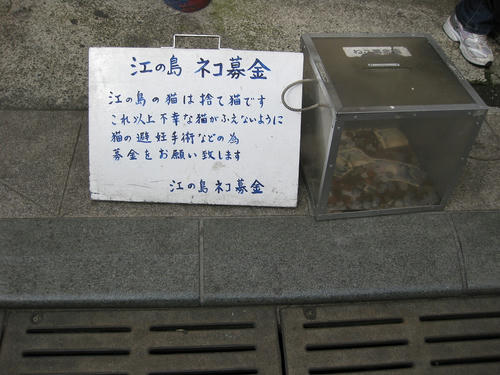 江の島 ネコ募金
江の島の猫は捨て猫です
これ以上不幸な猫がふえないように
猫の避妊手術などの為
募金をお願い致します
江の島 ネコ募金